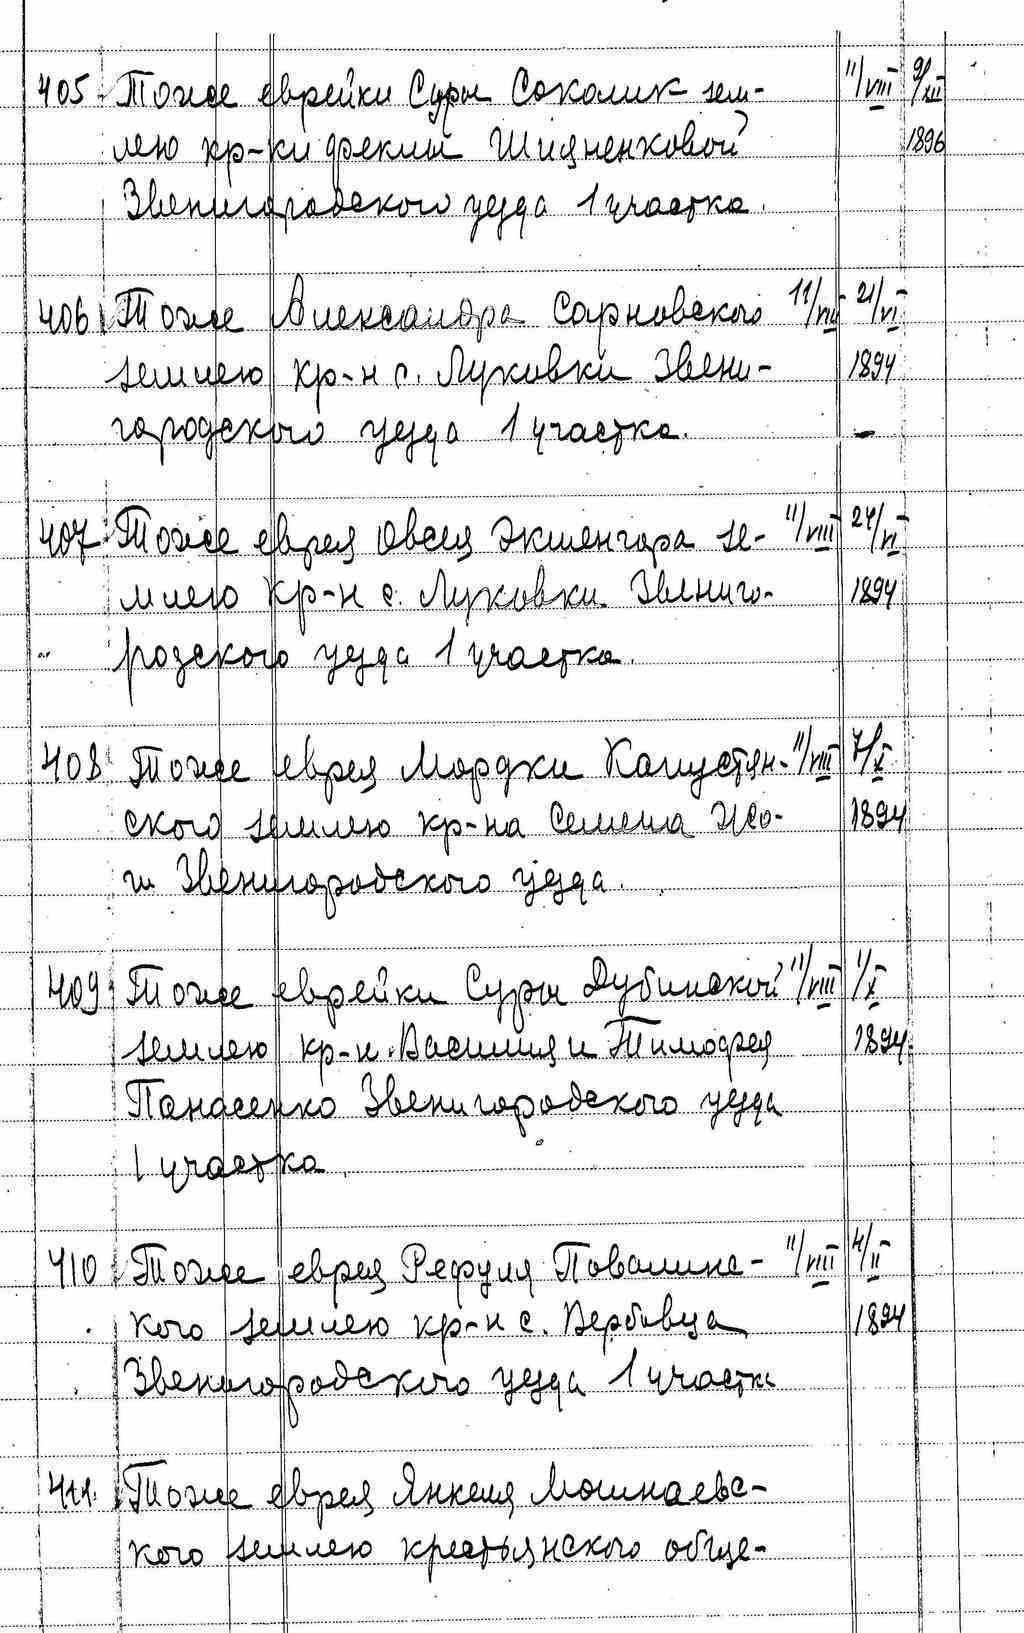 405 Тоже еврейки Суры Соколик зем- 11/VIII 9/XII
лею кр-ки Феклы Шияненковой 1896
Звенигородского уезда 1 участка.
406 Тоже Александра Сарновского 11/VIII 21/VI
землею кр-н с. Луковки Звени- 1894
городского уезда 1 участка. –
407 Тоже еврея Овсея Экшенгора зе- 11/VIII 24/VI
млею кр-н с. Луковки Звениго- 1894
родского уезда 1 участка.
408 Тоже еврея Мордки Капустян- 11/VIII 7/X
ского землею кр-на Семена 1894
Звенигородского уезда.
409 Тоже еврейки Суры Дубинской 11/VIII 1/X
землею кр-н Василия и Тимофея 1894
Панасенко Звенигородского уезда
1 участка.
410 Тоже еврея Рефуля Поволинс- 11/VIII 4/II
кого землею кр-н с. Вербовца 1894
Звенигородского уезда 1 участка
411. Тоже еврея Янкеля Мошнаевс-
кого землею крестьянского обще-